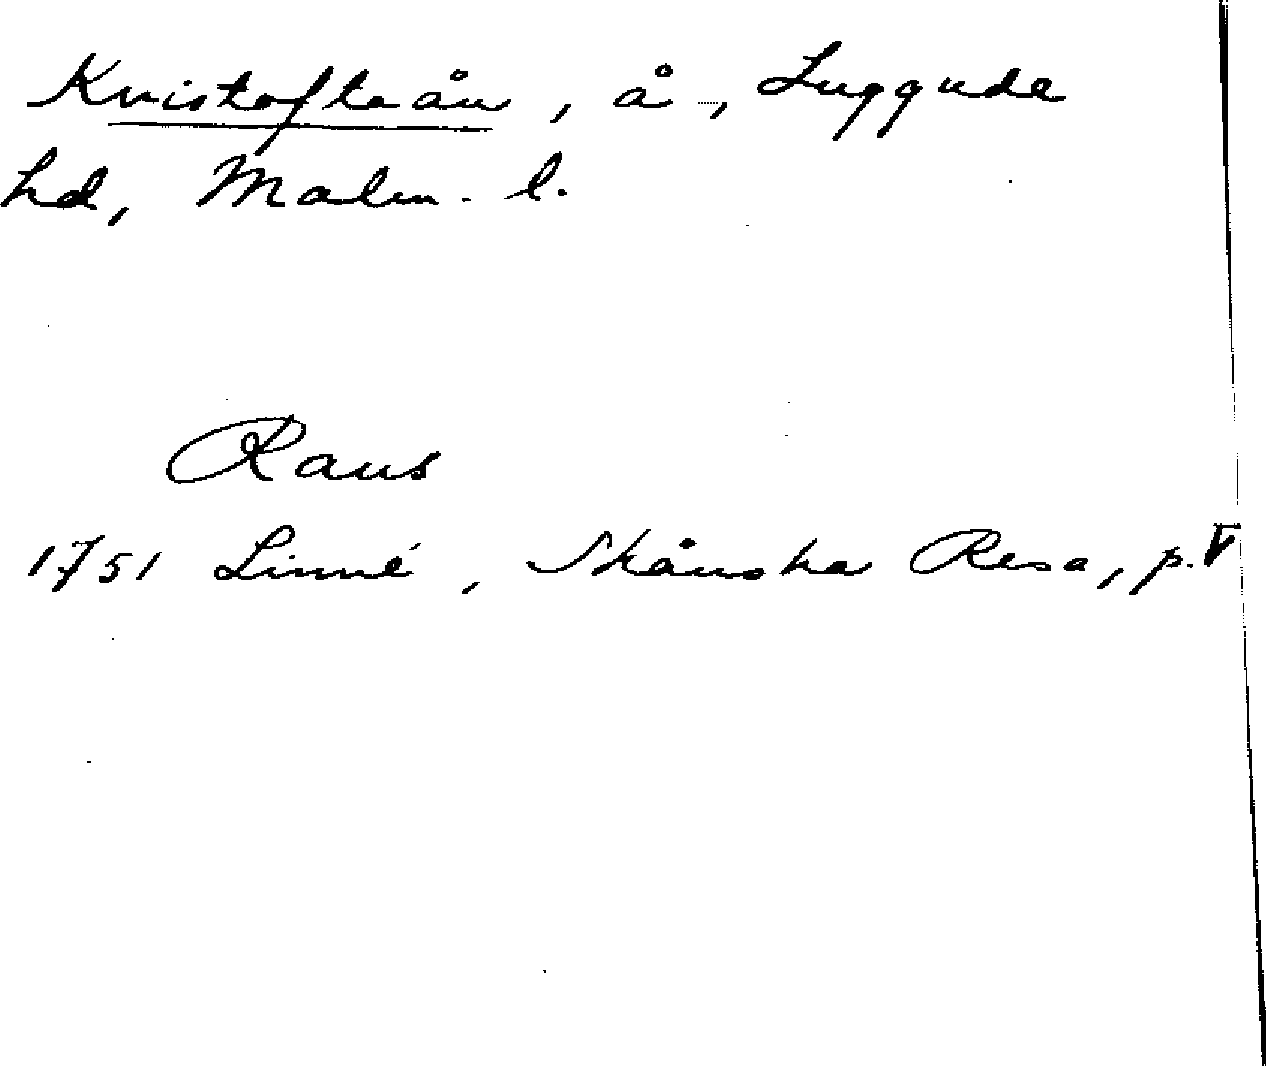 Kvistoftaån, å, Luggude
hd, Malm. l.
Raus
1751 Linné, Skånska Resa, p. V